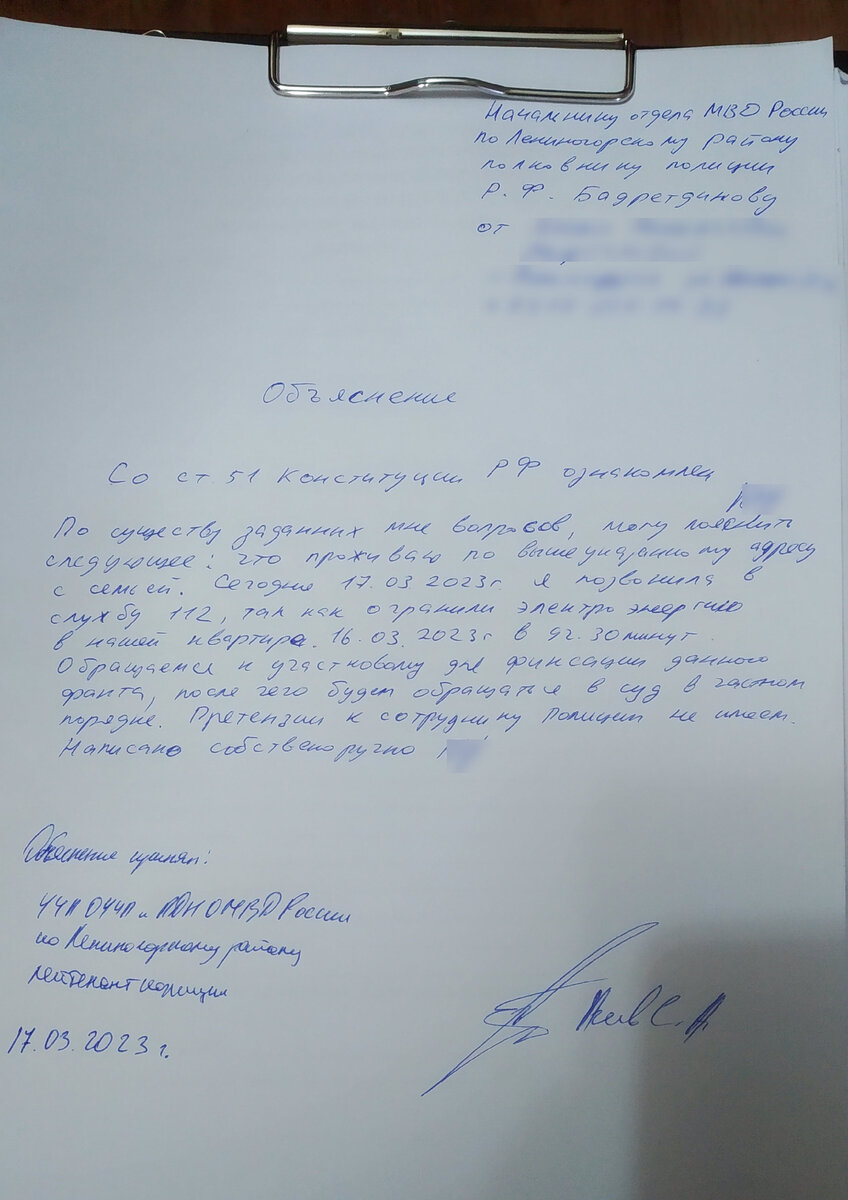 Начальнику отдела МВД России
по Лениногорскому району
полковнику полиции
Р. Ф. Бадретдинову
от
Объяснение
Со ст. 51 Конституции РФ ознакомлен
По существу заданных мне вопросов, могу пояснить
следующее: что проживаю по вышеуказанному адресу
с семьей. Сегодня 17.03.2023г. я позвонила в
службу 112, так как огранили электроэнергию
в нашей квартире. 16.03.2023г в 9г.30минут.
Обращаемся к участковому для фиксации данного
факта, после чего будем обращаться в суд в частном
порядке. Претензии к сотруднику Полиции не имеем.
Написано собственоручно
Объяснение принял:
УУП ОУУП и ПДН ОМВД России
по Лениногорскому району
лейтенант полиции
17.03.2023г.